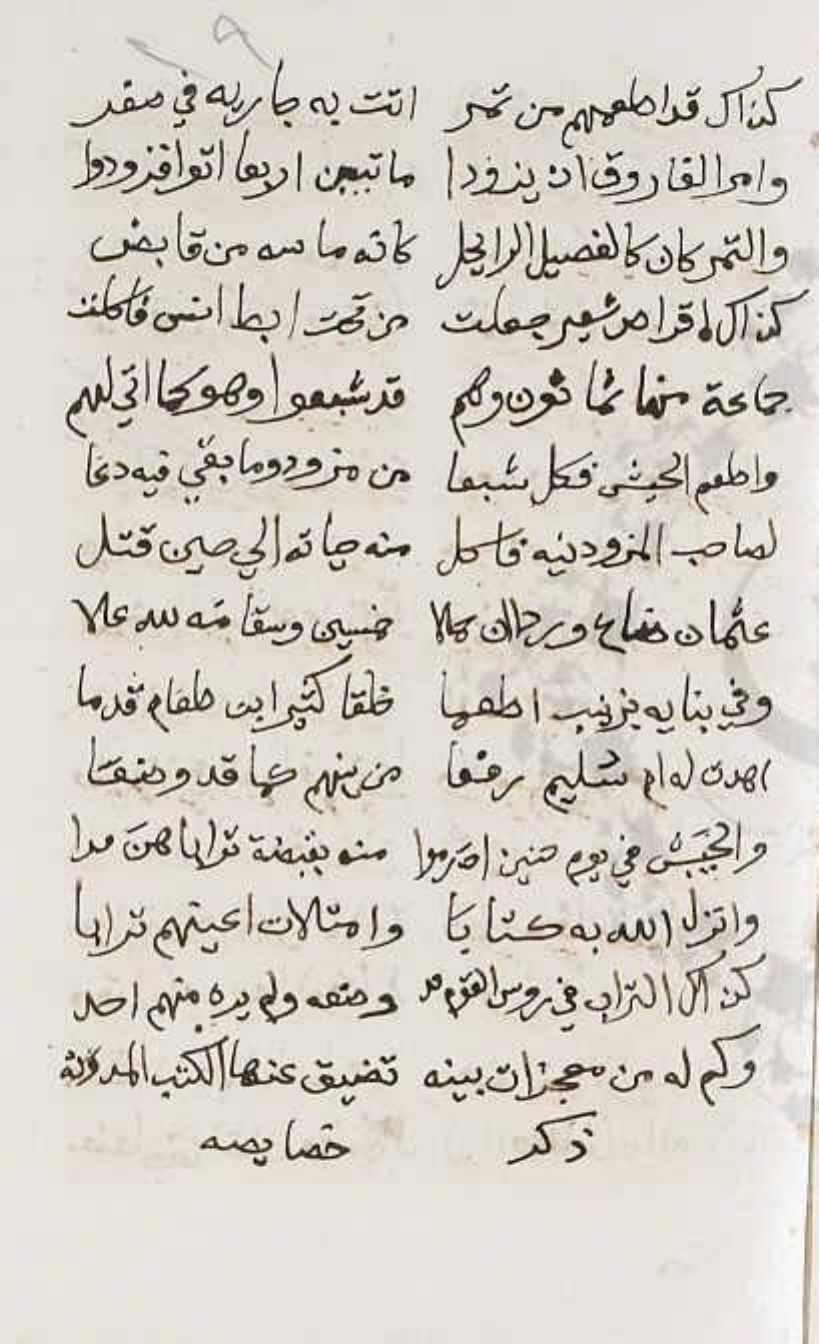 كذاك قد اطعمهم من تمر اتت به جاريه في صغر
وامر الفاروق ان يزودا ما تيين اربعا اتوا فزودوا
والتمر كان كالفصيل الرابض كانه ما مسه من قابض
كذاك اقراص شعير جعلت من تحت ابط انس فاكلت
جماعة منها ثمانون وهم قد شبعوا وهو كما اتي لهم
واطعم الجيش فكل شبعا من مزود وما بقي فيه دعا
لصاحب المزود فيه فاكل منه حياته الي حين قتل
عثمان ضاع ورووا ان حملا خمسين وسقا منه لله علا
وفي بنايه بزينب اطعما خلقا كثيرا من طعام قدما
اهدت له ام سليم رفعا من بينهم كما قد وضعا
والجيش في يوم حنين اذ رموا منه بقبضة ترابا هزموا
وانزل الله به كتابا وامتلات اعينهم ترابا
كذاك التراب في روس القوم قد وضعه ولم يره منهم احد
وكم له من معجزات بينه تضيق عنها الكتب المدونه
ذكر خصايصه